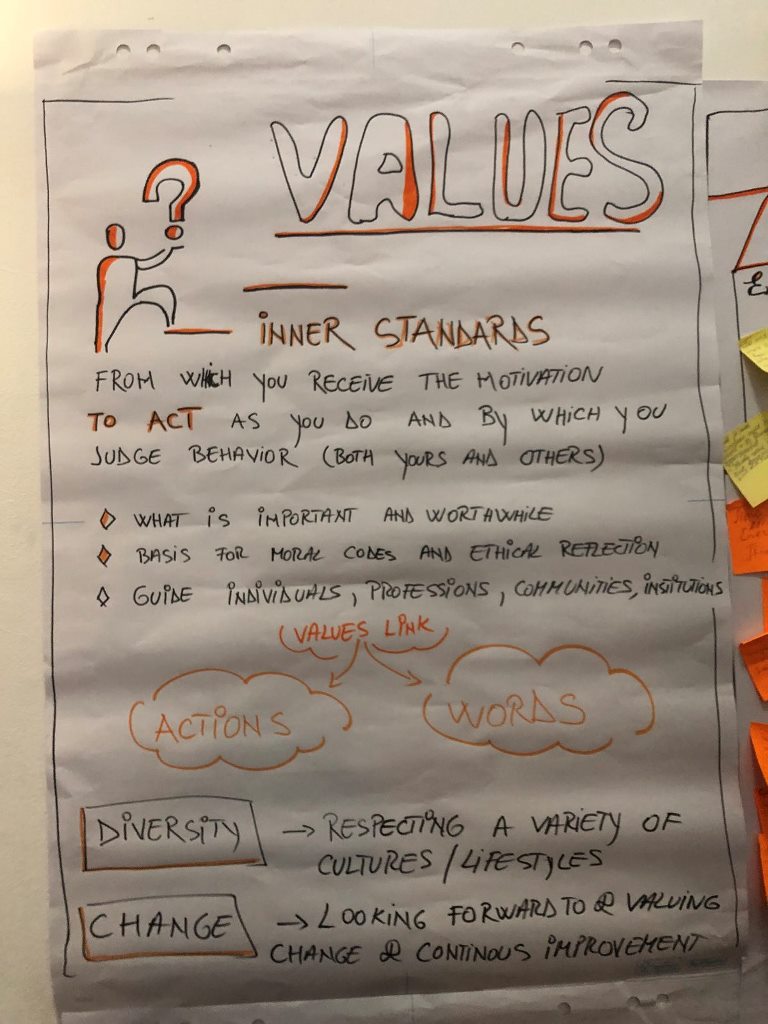 VALUES
?
INNER STANDARDS
FROM WHICH YOU RECEIVE THE MOTIVATION
TO ACT AS YOU DO AND BY WHICH YOU
JUDGE BEHAVIOR (BOTH YOURS AND OTHERS)
WHAT IS IMPORTANT AND WORTHWHILE
BASIS FOR MORAL CODES AND ETHICAL REFLECTION
GUIDE INDIVIDUALS, PROFESSIONS, COMMUNITIES, INSTITUTIONS
(VALUES LINK)
ACTIONS
WORDS
DIVERSITY → RESPECTING A VARIETY OF
CULTURES / LIFESTYLES
CHANGE → LOOKING FORWARD TO & VALUING
CHANGE & CONTINOUS IMPROVEMENT